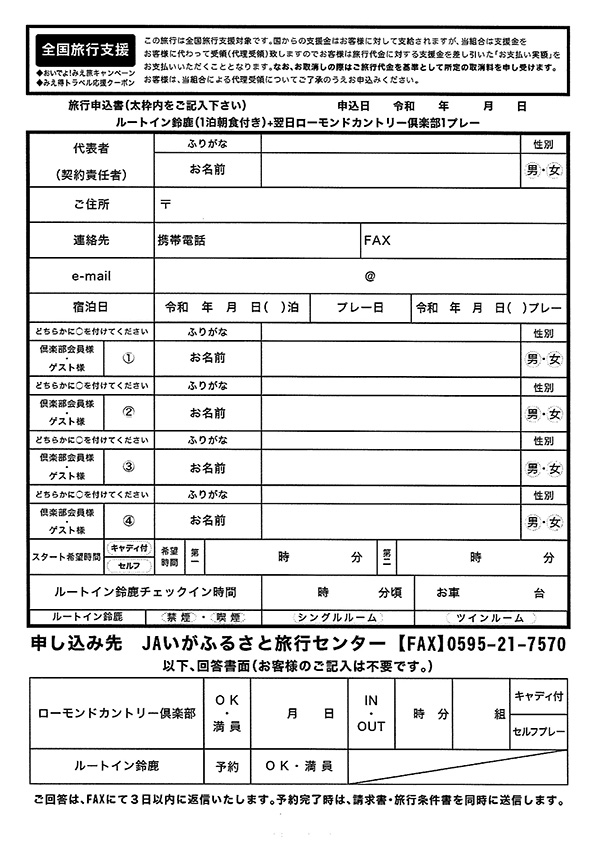 全国旅行支援
◆おいでよ!みえ旅キャンペーン
◆みえ得トラベル応援クーポン
この旅行は全国旅行支援対象です。国からの支援金はお客様に対して支給されますが、当組合は支援金を
お客様に代わって受領(代理受領)致しますのでお客様は旅行代金に対する支援金を差し引いた「お支払い実額」を
お支払いいただくこととなります。なお、お取消しの際はご旅行代金を基準として所定の取消料を申し受けます。
お客様は、当組合による代理受領についてご了承のうえお申込みください。
旅行申込書(太枠内をご記入下さい) 申込日 令和 年 月 日
ルートイン鈴鹿(1泊朝食付き)+翌日ローモンドカントリー倶楽部1プレー
代表者
(契約責任者)
ふりがな
性別
お名前
男・女
ご住所 〒
連絡先 携帯電話 FAX
e-mail @
宿泊日 令和 年 月 日( )泊 プレー日 令和 年 月 日( )プレー
どちらかに○を付けてください ふりがな 性別
倶楽部会員様
・
ゲスト様
① お名前 男・女
どちらかに○を付けてください ふりがな 性別
倶楽部会員様
・
ゲスト様
② お名前 男・女
どちらかに○を付けてください ふりがな 性別
倶楽部会員様
・
ゲスト様
③ お名前 男・女
どちらかに○を付けてください ふりがな 性別
倶楽部会員様
・
ゲスト様
④ お名前 男・女
スタート希望時間
キャディ付
セルフ
希望
時間
第一 時 分 第二 時 分
ルートイン鈴鹿チェックイン時間 時 分頃 お車 台
ルートイン鈴鹿 禁煙・喫煙 シングルルーム ツインルーム
申し込み先 JAいがふるさと旅行センター【FAX】0595-21-7570
以下、回答書面(お客様のご記入は不要です。)
ローモンドカントリー倶楽部
OK
・
満員
月 日
IN
・
OUT
時 分 組
キャディ付
セルフプレー
ルートイン鈴鹿 予約 OK・満員
ご回答は、FAXにて3日以内に返信いたします。予約完了時は、請求書・旅行条件書を同時に送信します。